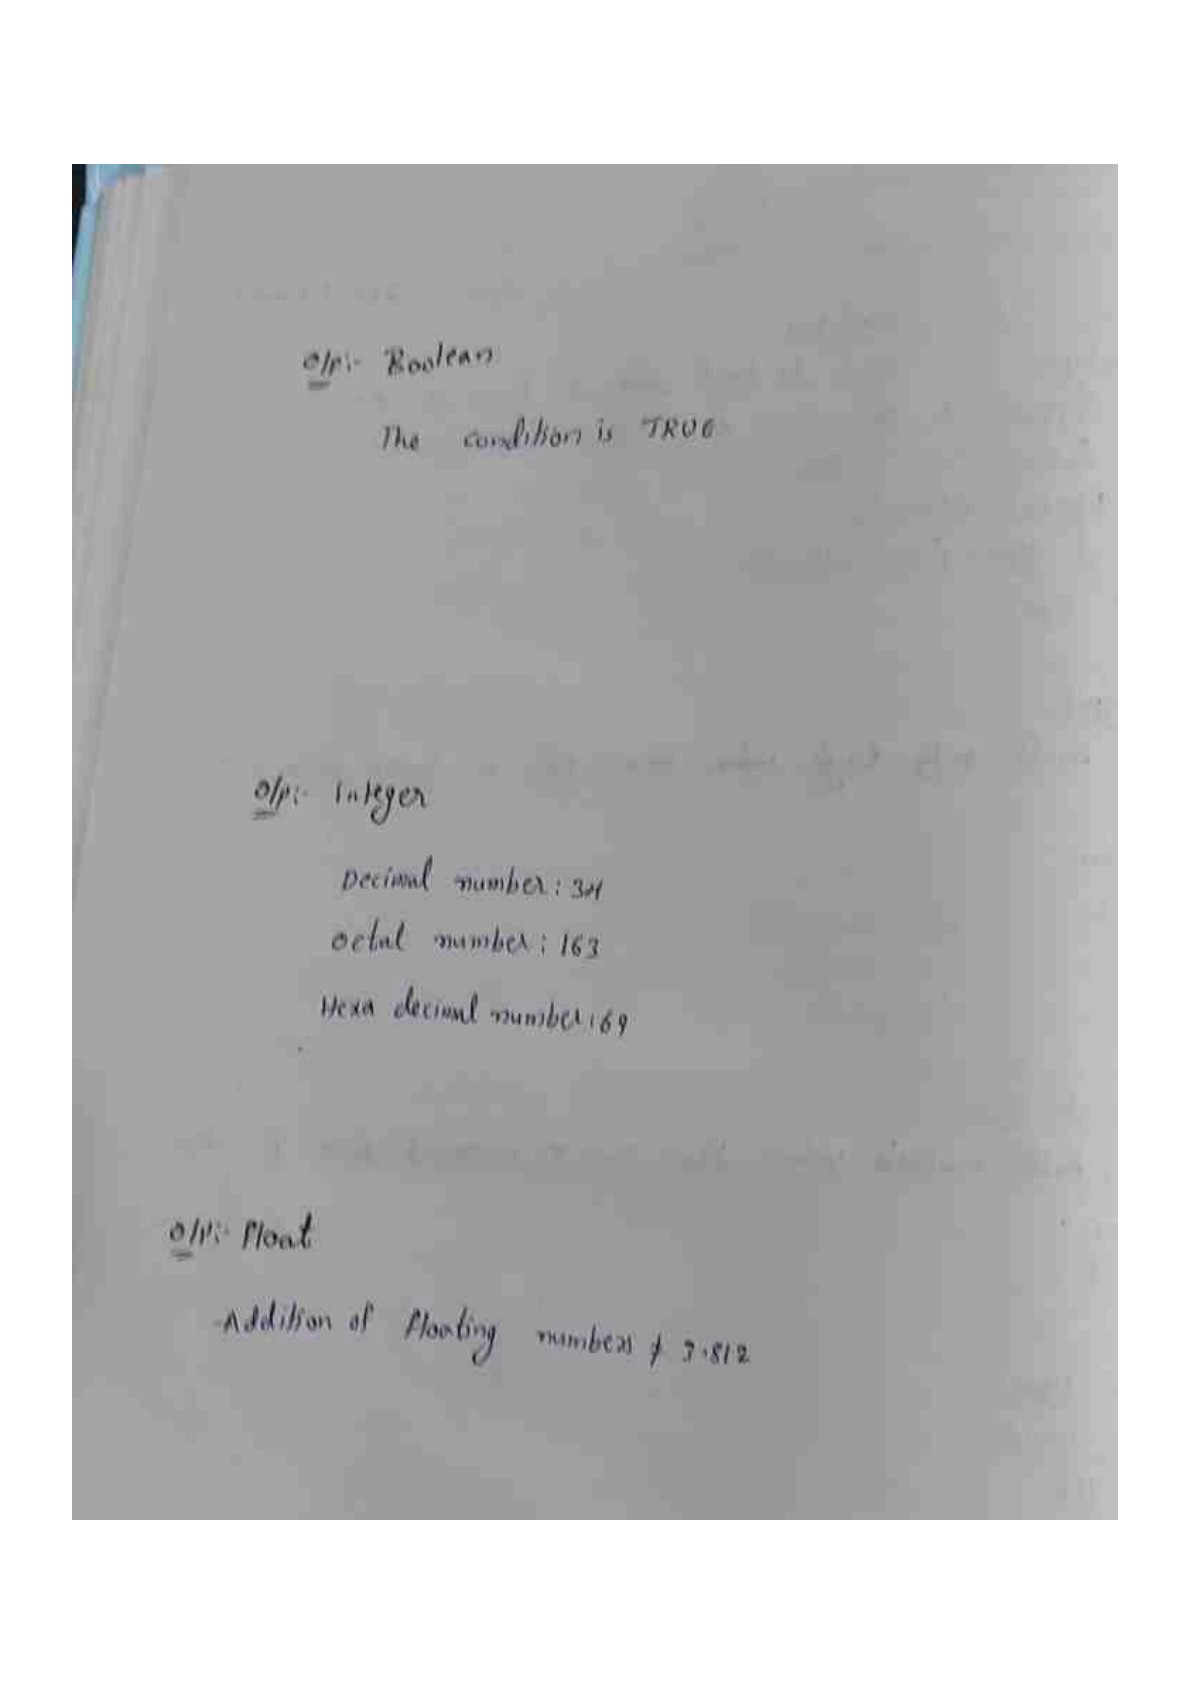 O/P:- Boolean
The condition is TRUE
O/P:- Integer
Decimal number: 34
Octal number: 163
Hexa decimal number: 69
O/P:- Float
Addition of floating numbers 3.812